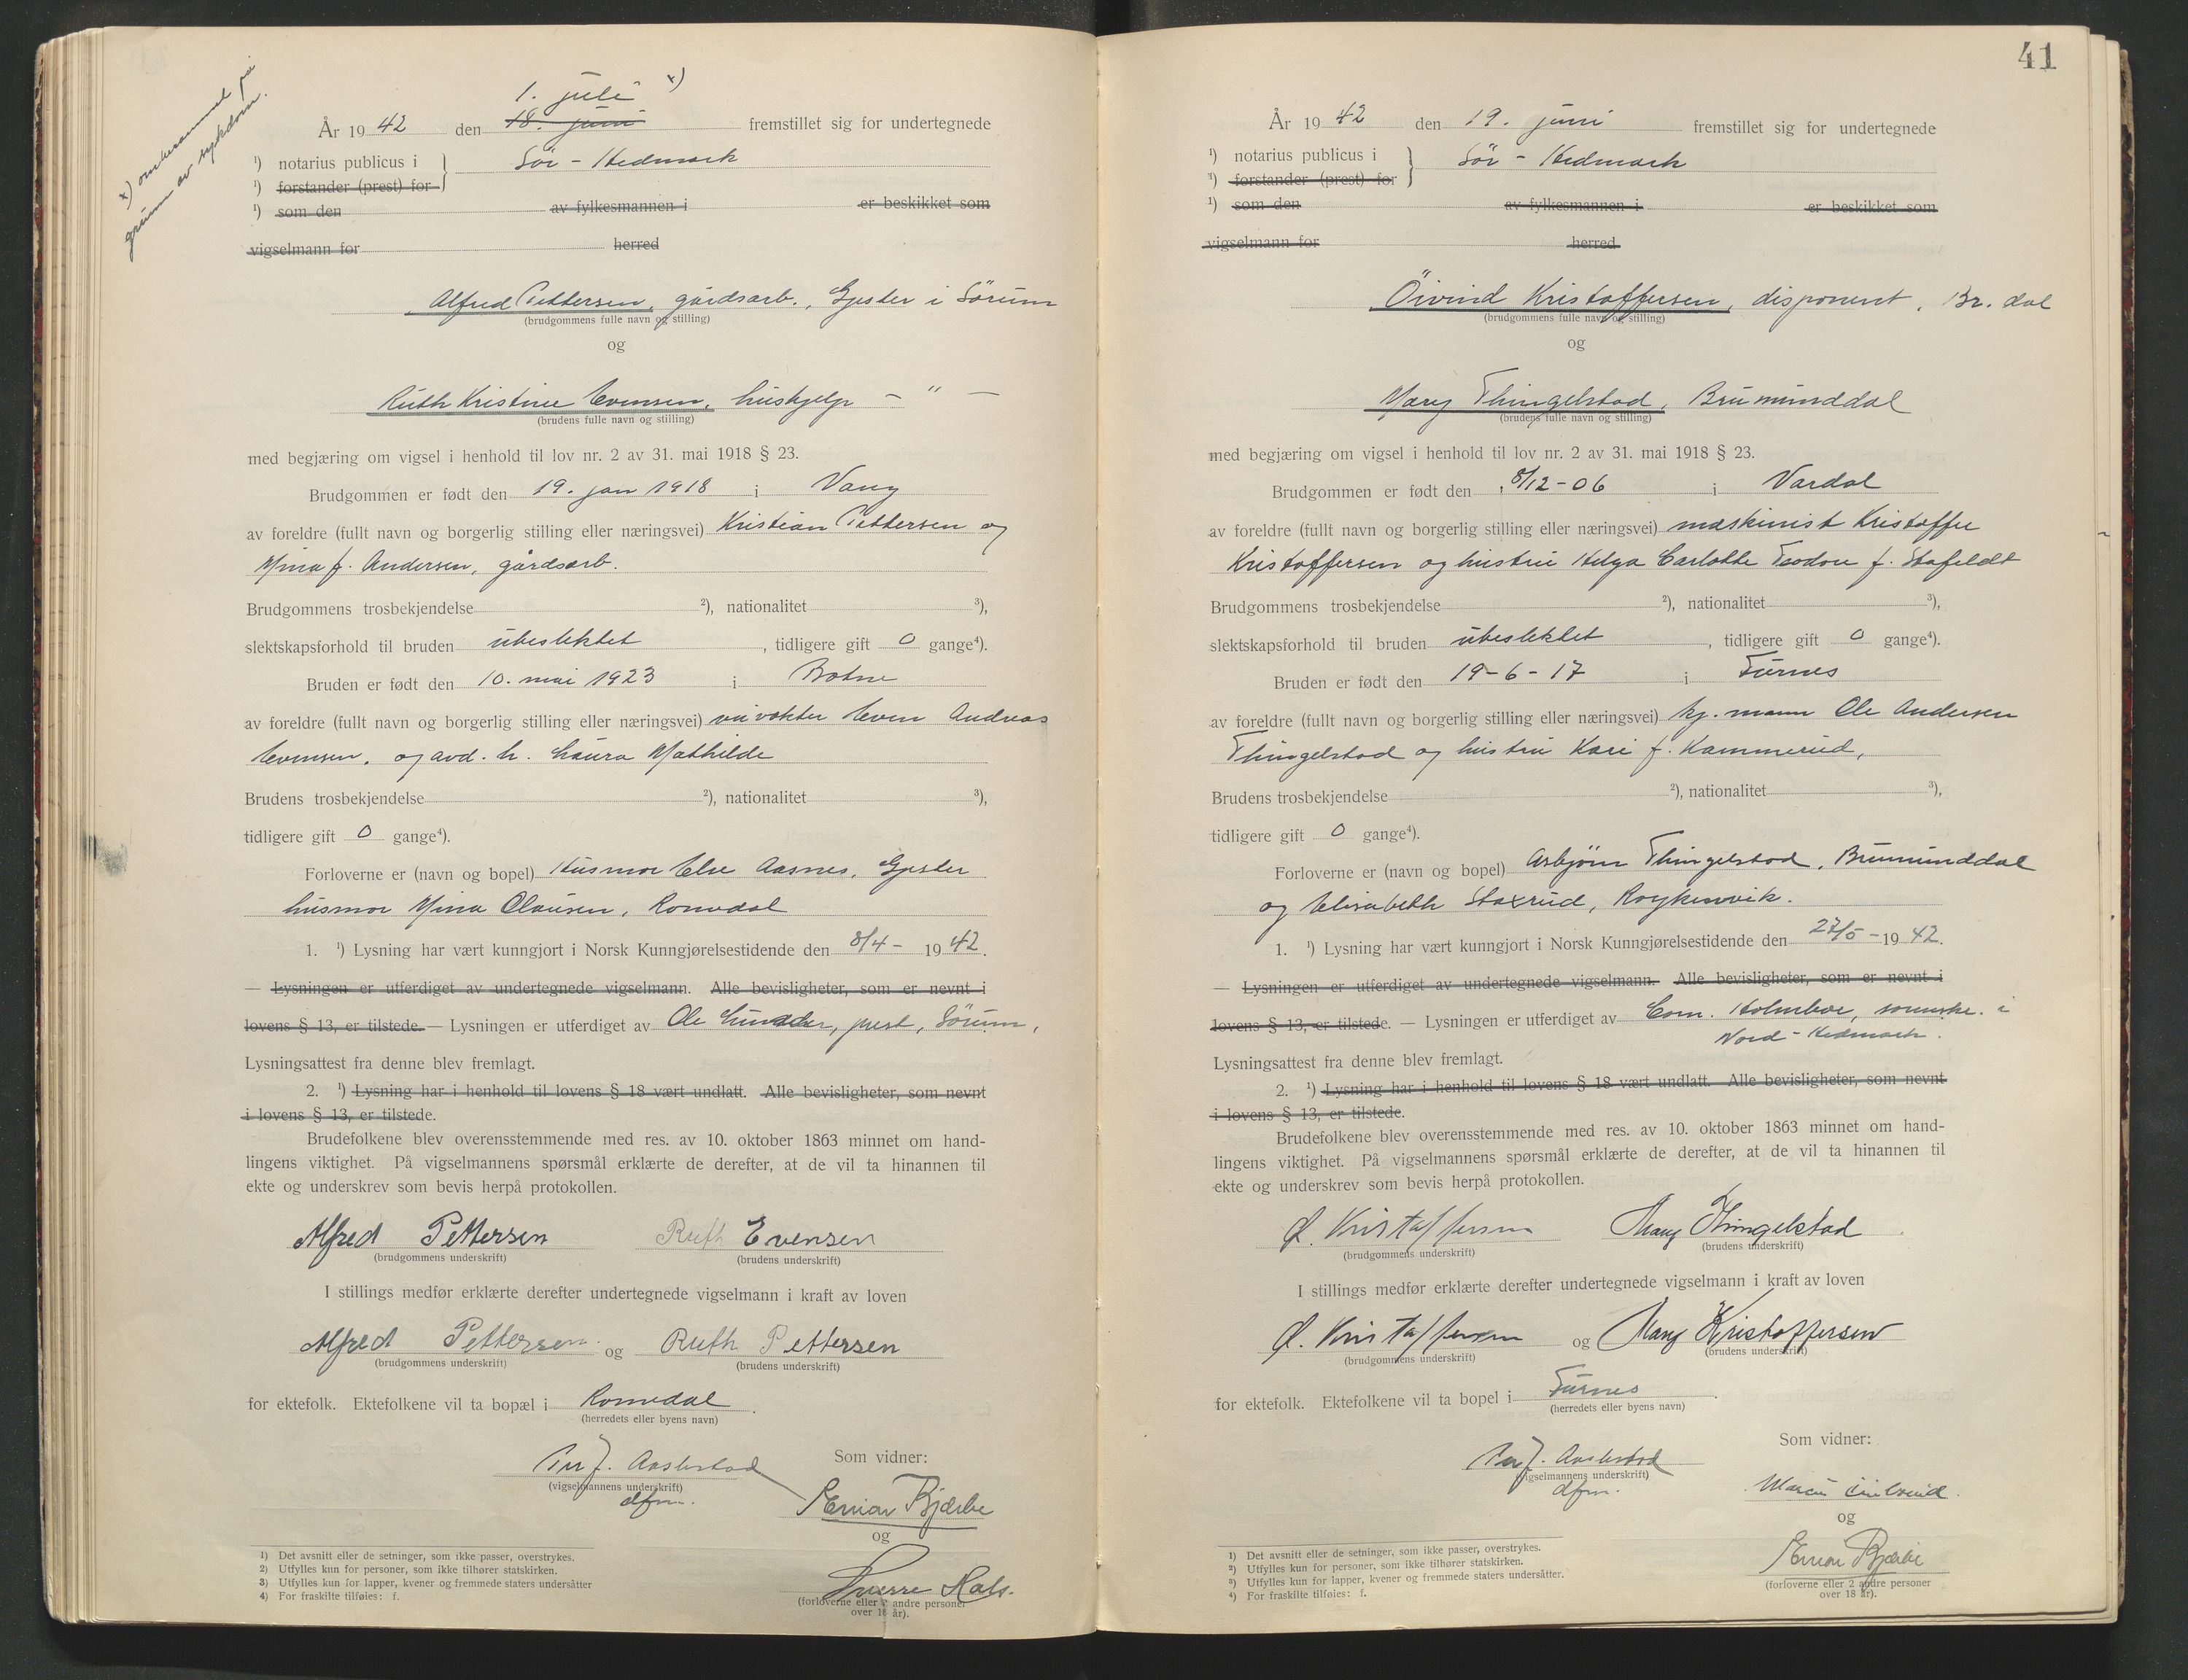 x) omberammet på
grunn av sykdom.
1. juli x)
År 1942 den 18. juni fremstillet sig for undertegnede
¹) notarius publicus i } Sør-Hedmark
¹) forstander (prest) for
¹) som den av fylkesmannen i er beskikket som
vigselmann for herred
Alfred Pettersen, gårdsarb., Gjester i Sørum
(brudgommens fulle navn og stilling)
og
Ruth Kristine Evensen, hushjelp - " -
(brudens fulle navn og stilling)
med begjæring om vigsel i henhold til lov nr. 2 av 31. mai 1918 § 23.
Brudgommen er født den 19. jan 1918 i Vang
av foreldre (fullt navn og borgerlig stilling eller næringsvei) Kristian Pettersen og
Mina f. Andersen, gårdsarb.
Brudgommens trosbekjendelse ²), nationalitet ³),
slektskapsforhold til bruden ubeslektet, tidligere gift 0 gange⁴).
Bruden er født den 10. mai 1923 i Botne
av foreldre (fullt navn og borgerlig stilling eller næringsvei) veivokter Even Andreas
Evensen, og avd. h. Laura Mathilde
Brudens trosbekjendelse ²), nationalitet ³),
tidligere gift 0 gange⁴).
Forloverne er (navn og bopel) Husmor Else Aasnes, Gjester
husmor Mina Clausen, Romedal
1. ¹) Lysning har vært kunngjort i Norsk Kunngjørelsestidende den 8/4 - 1942.
— Lysningen er utferdiget av undertegnede vigselmann. Alle bevisligheter, som er nevnt i
lovens § 13, er tilstede. — Lysningen er utferdiget av Ole prest, Sørum,
Lysningsattest fra denne blev fremlagt.
2. ¹) Lysning har i henhold til lovens § 18 vært undlatt. Alle bevisligheter, som nevnt
i lovens § 13, er tilstede.
Brudefolkene blev overensstemmende med res. av 10. oktober 1863 minnet om hand-
lingens viktighet. På vigselmannens spørsmål erklærte de derefter, at de vil ta hinannen til
ekte og underskrev som bevis herpå protokollen.
Alfred Pettersen Ruth Evensen
(brudgommens underskrift) (brudens underskrift)
I stillings medfør erklærte derefter undertegnede vigselmann i kraft av loven
Alfred Pettersen. og Ruth Pettersen
(brudgommens underskrift) (brudens underskrift)
for ektefolk. Ektefolkene vil ta bopæl i Romedal.
(herredets eller byens navn)
Som vidner:
Per J. Aaslestad
(vigselmannens underskrift)
dfm.
Einar Bjærbe
og
Sverre Hals.
(forloverne eller 2 andre personer
over 18 år).
1) Det avsnitt eller de setninger, som ikke passer, overstrykes.
2) Utfylles kun for personer, som ikke tilhører statskirken.
3) Utfylles kun for lapper, kvener og fremmede staters undersåtter
4) For fraskilte tilføies: f.
41
År 1942 den 19. juni fremstillet sig for undertegnede
¹) notarius publicus i } Sør-Hedmark
¹) forstander (prest) for
¹) som den av fylkesmannen i er beskikket som
vigselmann for herred
Öivind Kristoffersen, disponent, Br. dal
(brudgommens fulle navn og stilling)
og
Mary Thingelstad, Brumunddal
(brudens fulle navn og stilling)
med begjæring om vigsel i henhold til lov nr. 2 av 31. mai 1918 § 23.
Brudgommen er født den 8/12-06 i Vardal
av foreldre (fullt navn og borgerlig stilling eller næringsvei) maskinist Kristoffer
Kristoffersen og hustru Helga Carlotte Teodore f. Stafeldt
Brudgommens trosbekjendelse ²), nationalitet ³),
slektskapsforhold til bruden ubeslektet, tidligere gift 0 gange⁴).
Bruden er født den 19-6-17 i Furnes
av foreldre (fullt navn og borgerlig stilling eller næringsvei) kj. mann Ole Andersen
Thingelstad og hustru Kari f. Kammerud,
Brudens trosbekjendelse ²), nationalitet ³),
tidligere gift 0 gange⁴).
Forloverne er (navn og bopel) Asbjørn Thingelstad, Brumunddal
og Elisabeth Staxrud, Roykenvik.
1. ¹) Lysning har vært kunngjort i Norsk Kunngjørelsestidende den 27/5 - 1942.
— Lysningen er utferdiget av undertegnede vigselmann. Alle bevisligheter, som er nevnt i
lovens § 13, er tilstede. — Lysningen er utferdiget av Corn. Holmboe, sorenskr. i
Nord-Hedmark.
Lysningsattest fra denne blev fremlagt.
2. ¹) Lysning har i henhold til lovens § 18 vært undlatt. Alle bevisligheter, som nevnt
i lovens § 13, er tilstede.
Brudefolkene blev overensstemmende med res. av 10. oktober 1863 minnet om hand-
lingens viktighet. På vigselmannens spørsmål erklærte de derefter, at de vil ta hinannen til
ekte og underskrev som bevis herpå protokollen.
Ø. Kristoffersen Mary Thingelstad
(brudgommens underskrift) (brudens underskrift)
I stillings medfør erklærte derefter undertegnede vigselmann i kraft av loven
Ø. Kristoffersen og Mary Kristoffersen
(brudgommens underskrift) (brudens underskrift)
for ektefolk. Ektefolkene vil ta bopel i Furnes.
(herredets eller byens navn)
Som vidner:
Per J. Aaslestad
(vigselmannens underskrift)
dfm.
og
Einar Bjærbe
(forloverne eller 2 andre personer
over 18 år).
1) Det avsnitt eller de setninger, som ikke passer, overstrykes.
2) Utfylles kun for personer, som ikke tilhører statskirken.
3) Utfylles kun for lapper, kvener og fremmede staters undersåtter.
4) For fraskilte tilføies: f.